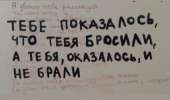 ТЕБЕ ПОКАЗАЛОСЬ,
ЧТО ТЕБЯ БРОСИЛИ,
А ТЕБЯ, ОКАЗАЛОСЬ, И
НЕ БРАЛИ